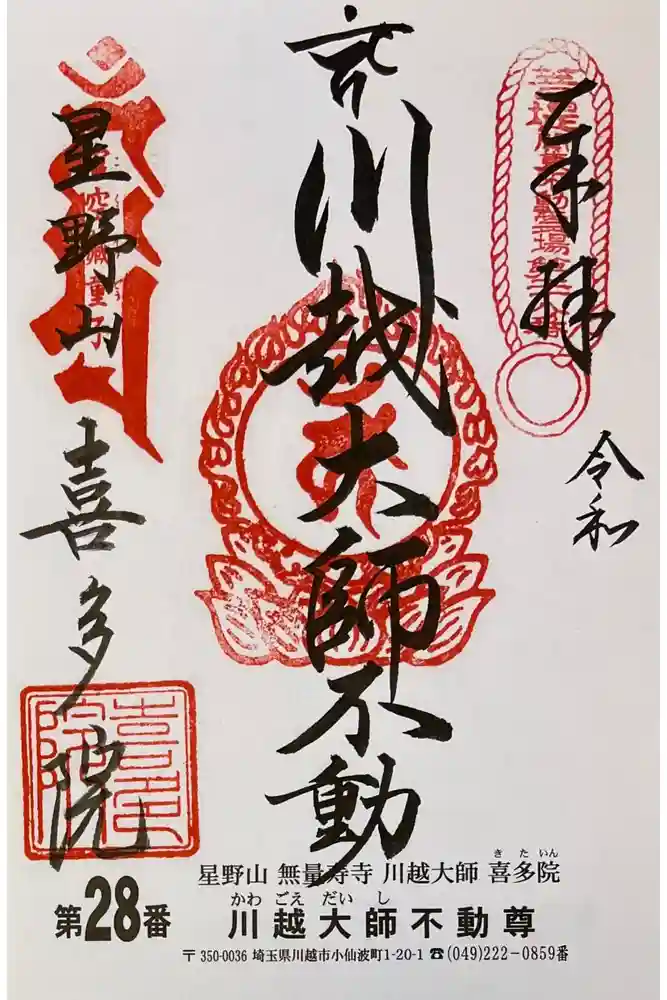 奉拝
令和
川越大師不動
星野山
喜多院
喜多院
第28番
星野山 無量寿寺 川越大師 喜多院
きたいん
川越大師不動尊
かわごえだいし
〒350-0036 埼玉県川越市小仙波町1-20-1 ☎(049)222-0859番